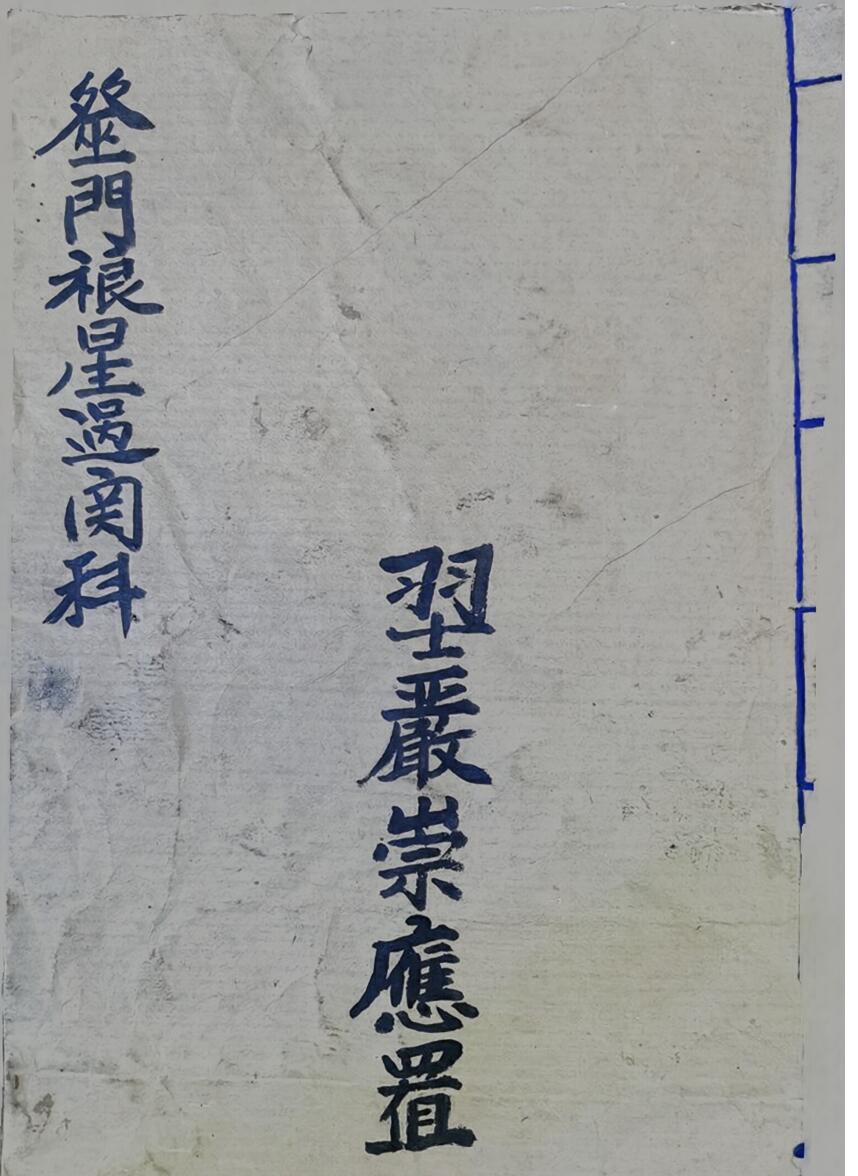 嚴崇應置
門禳星過関科